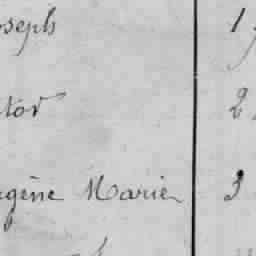 oseph 1
ctor 2
ugène Marien 3